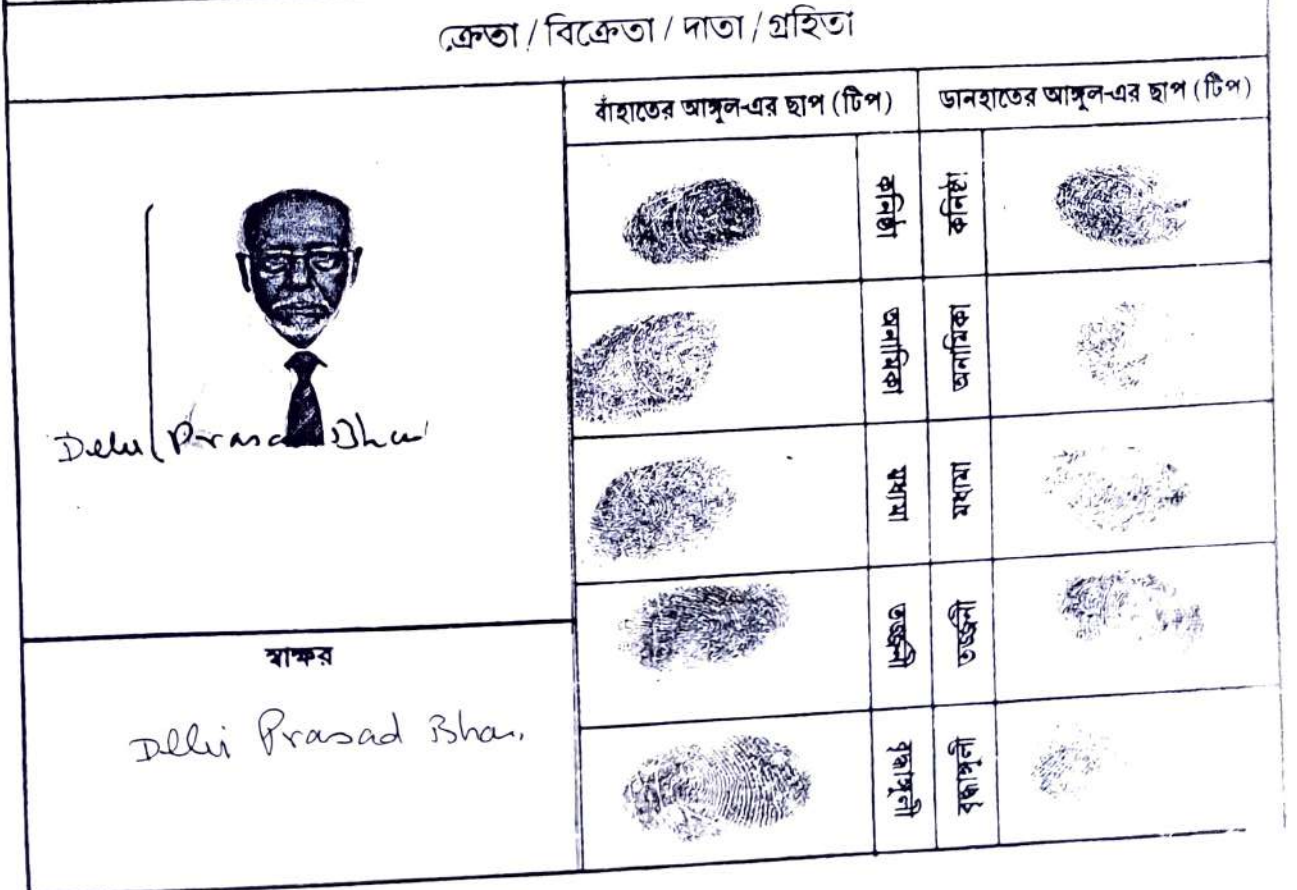 ক্রেতা / বিক্রেতা / দাতা / গ্রহিতা
বাঁহাতের আঙ্গুল-এর ছাপ (টিপ)
ডানহাতের আঙ্গুল-এর ছাপ (টিপ)
কনিষ্ঠা
কনিষ্ঠা
অনামিকা
অনামিকা
মধ্যমা
মধ্যমা
তর্জ্জনী
তর্জ্জনী
বৃদ্ধাঙ্গুলী
বৃদ্ধাঙ্গুলী
Prasad
স্বাক্ষর
Prasad